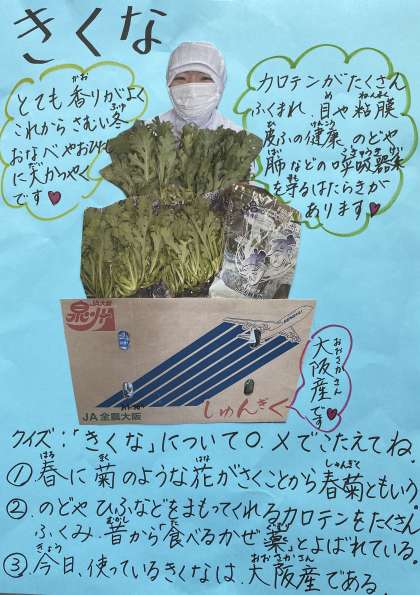 きくな
とても香りがよく
これから さむい冬
おなべやおひたし
に大かつやく
です♥
カロテンがたくさん
ふくまれ、目や粘膜
皮ふの健康、のどや
肺などの呼吸器系
を守るはたらきが
あります♥
JA大阪
泉州
JA全農大阪
しゅんぎく
大阪産
です♥
クイズ:「きくな」について○、×でこたえてね。
①.春に菊のような花がさくことから春菊ともいう
②.のどやひふなどをまもってくれるカロテンをたくさん
ふくみ、昔から「食べるかぜ薬」とよばれている。
③.今日、使っているきくなは、大阪産である。